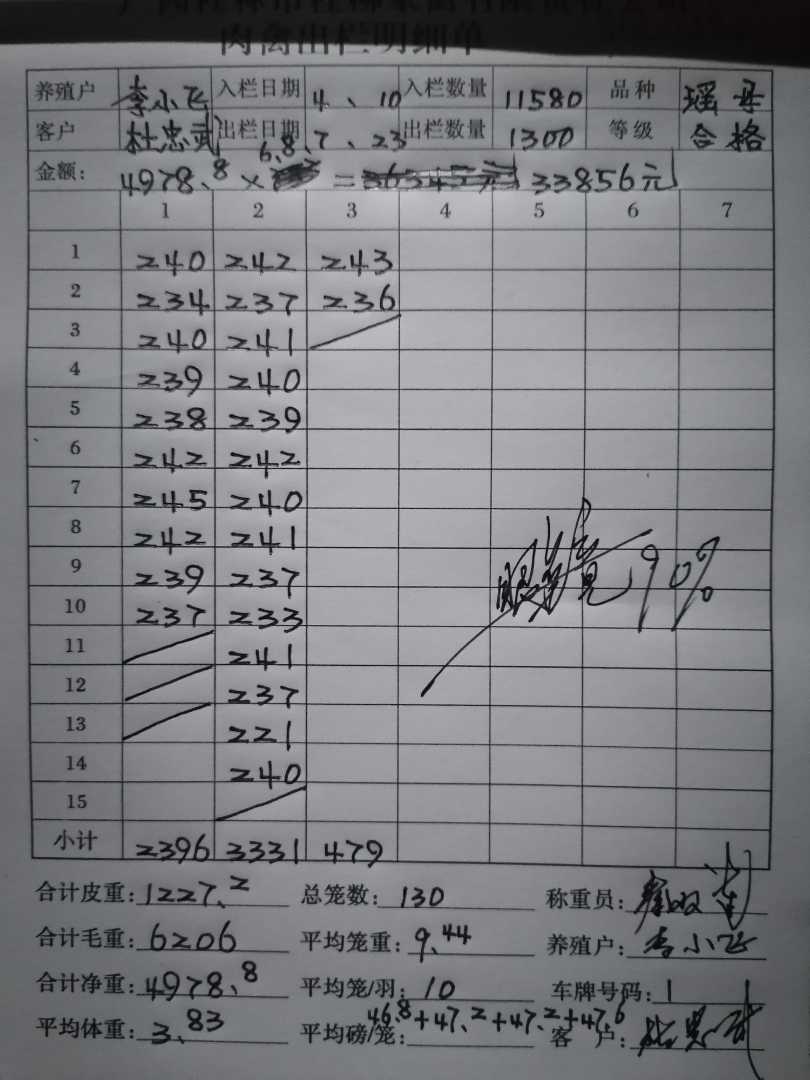 肉禽出栏明细单
养殖户 李小飞 入栏日期 4、10 入栏数量 11580 品种 瑶母
客户 杜忠武 出栏日期 7、23 出栏数量 1300 等级 合格
金额: 4978.8 × 6.8 = 33856元
1 2 3 4 5 6 7
1 240 242 243
2 234 237 236
3 240 241
4 239 240
5 238 239
6 242 242
7 245 240
8 242 241
9 239 237
10 237 233
11 241
12 237
13 221
14 240
15
小计 2396 3331 479
90%
合计皮重: 1227.2 总笼数: 130 称重员:
合计毛重: 6206 平均笼重: 9.44 养殖户: 李小飞
合计净重: 4978.8 平均笼/羽: 10 车牌号码: 1
平均体重: 3.83 平均磅/笼: 46.8+47.2+47.2+47.6 客 户: 杜忠武